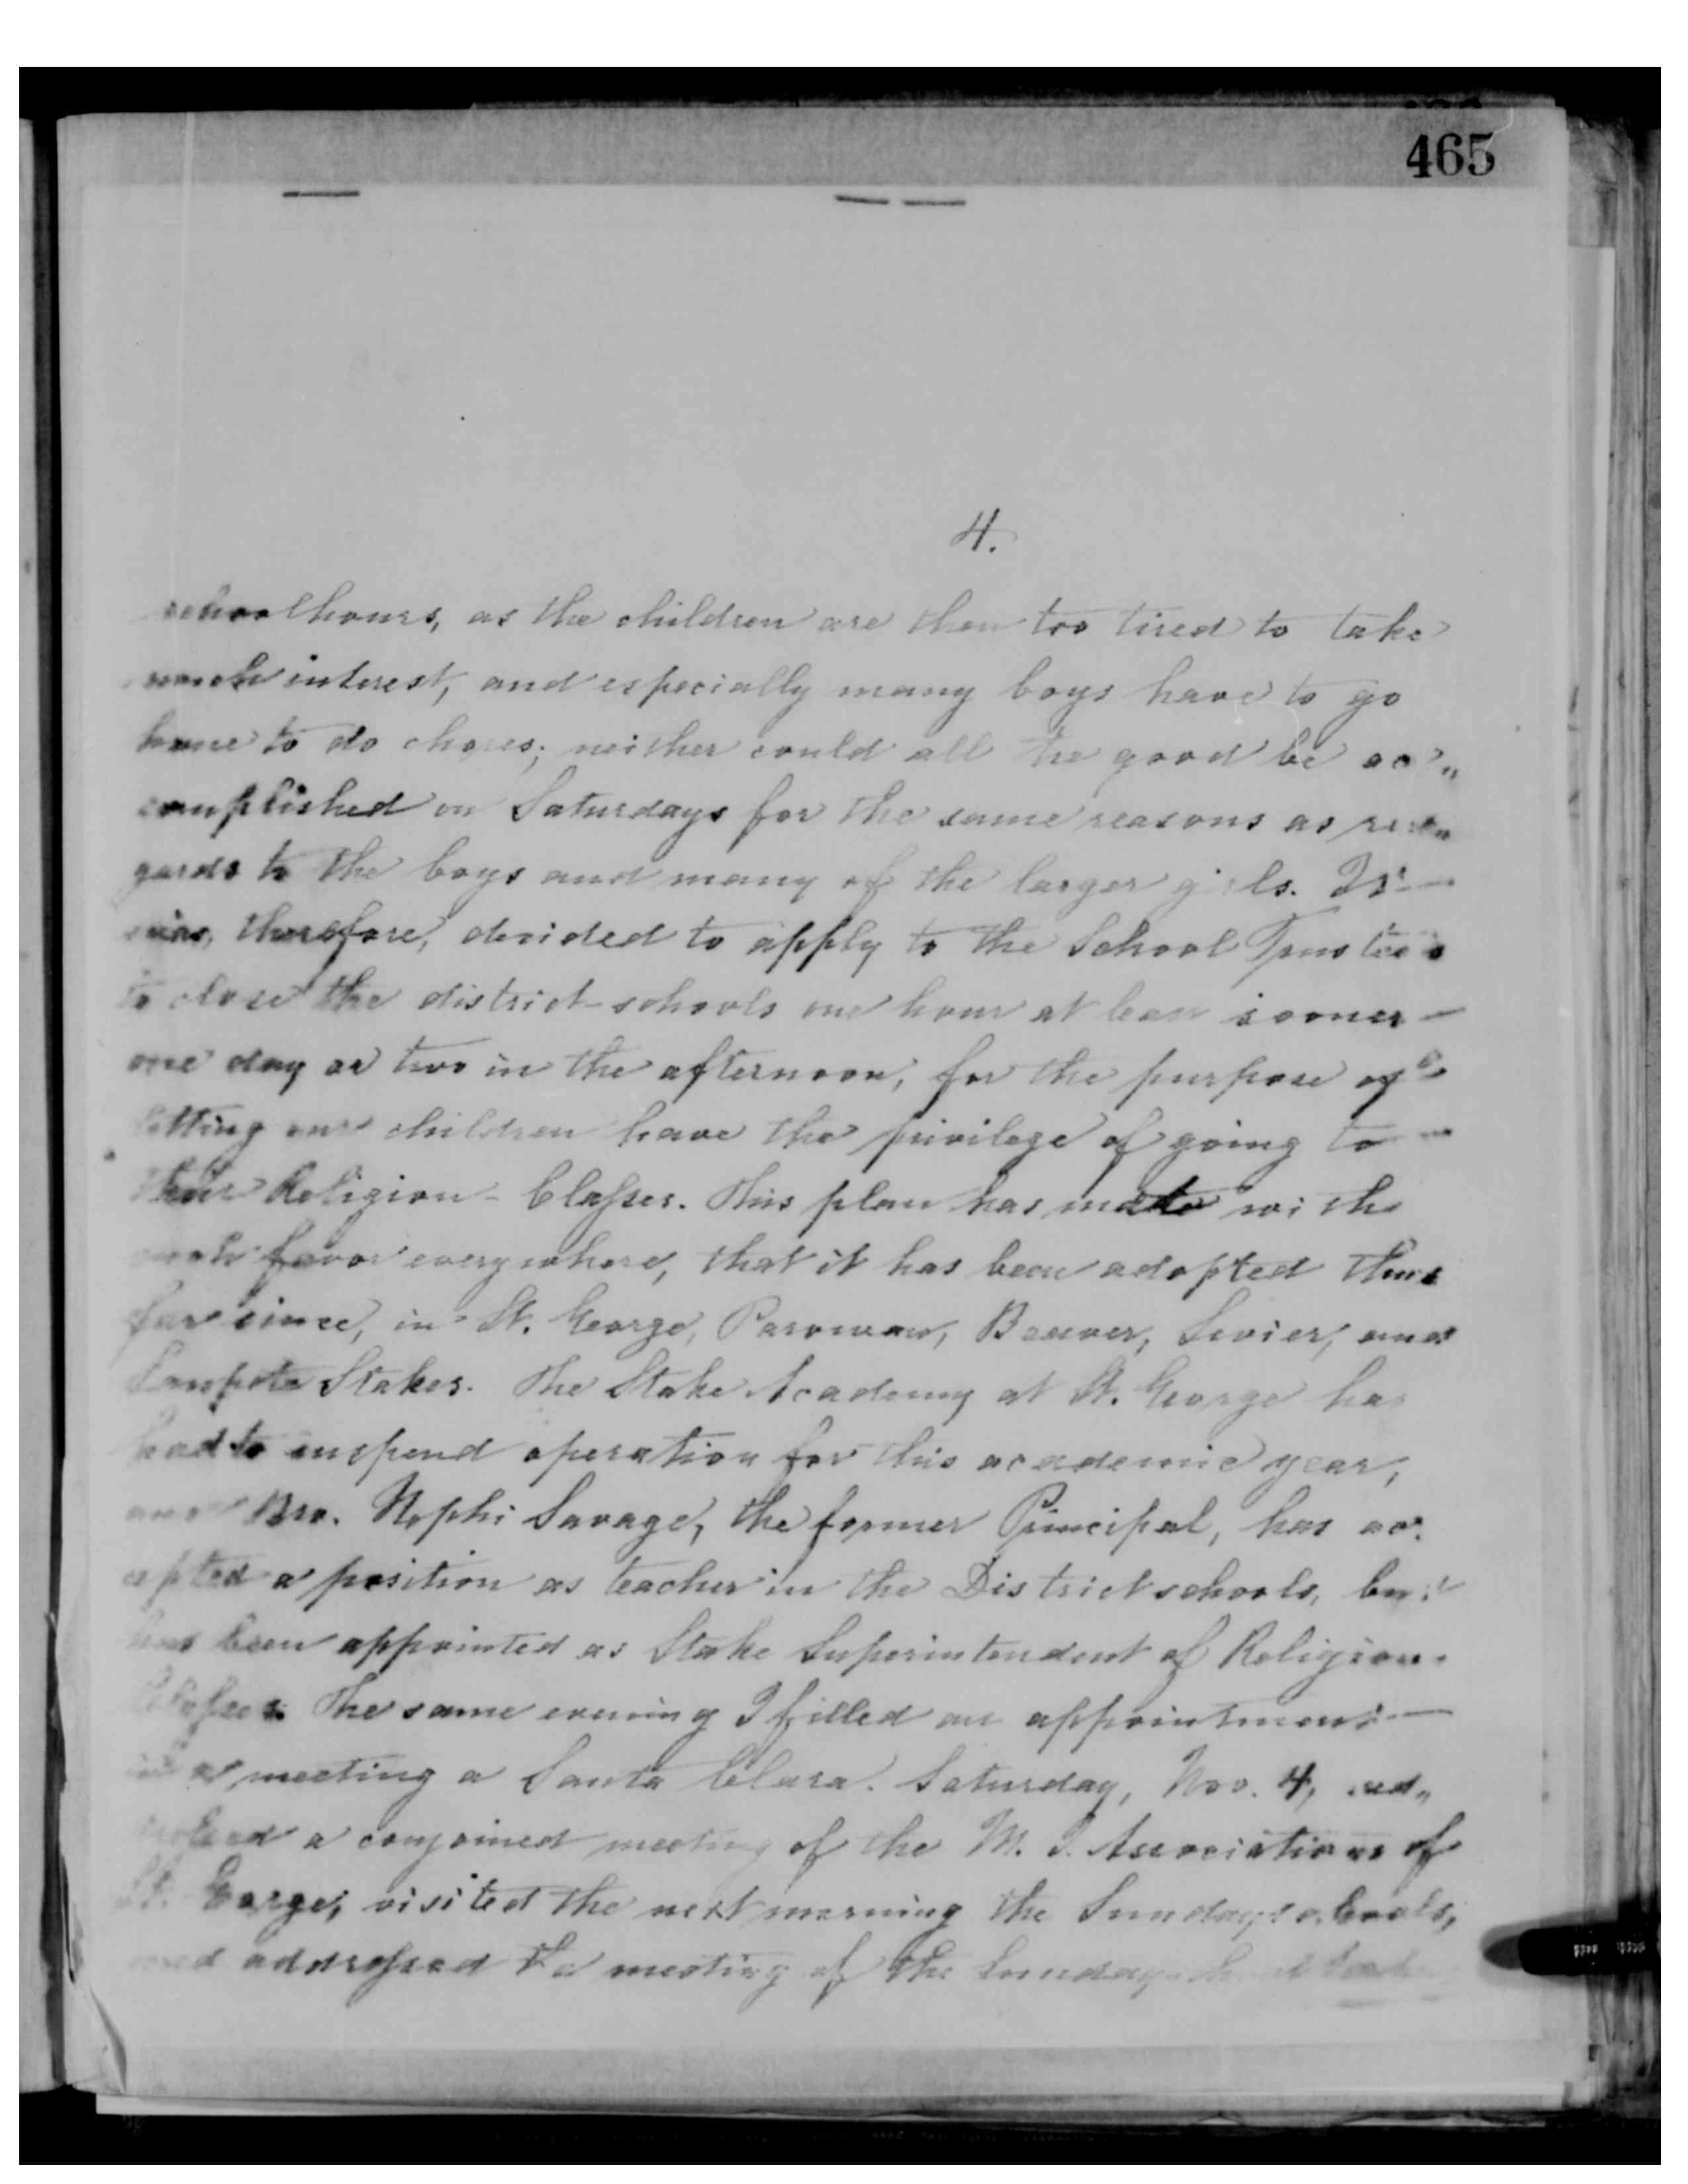 465
4.
schoolhours, as the children are then too tired to take
much interest, and especially many boys have to go
home to do chores; neither could all the good be ac„
complished on Saturdays for the same reasons as re„
gards to the boys and many of the larger girls. It
was, therefore, decided to apply to the School Trustees
to close the district-schools one hour at least sooner
one day or two in the afternoon, for the purpose of
letting our children have the privilege of going to
their Religion-Classes. This plan has met with
such favor everywhere, that it has been adopted thus
far since, in St. George, Parowan, Beaver, Sevier, and
Sanpete Stakes. The Stake Academy at St. George has
had to suspend operation for this academic year,
and Bro. Nephi Savage, the former Principal, has ac„
cepted a position as teacher in the Districtschools, but
has been appointed as Stake Superintendent of Religion-
Classes. The same evening I filled an appointment
in a meeting a Santa Clara. Saturday, Nov. 4, ad„
dressed a conjoined meeting of the M. I. Associations of
St. George; visited the next morning the Sundayschools,
and addressed the meeting of the Sunday